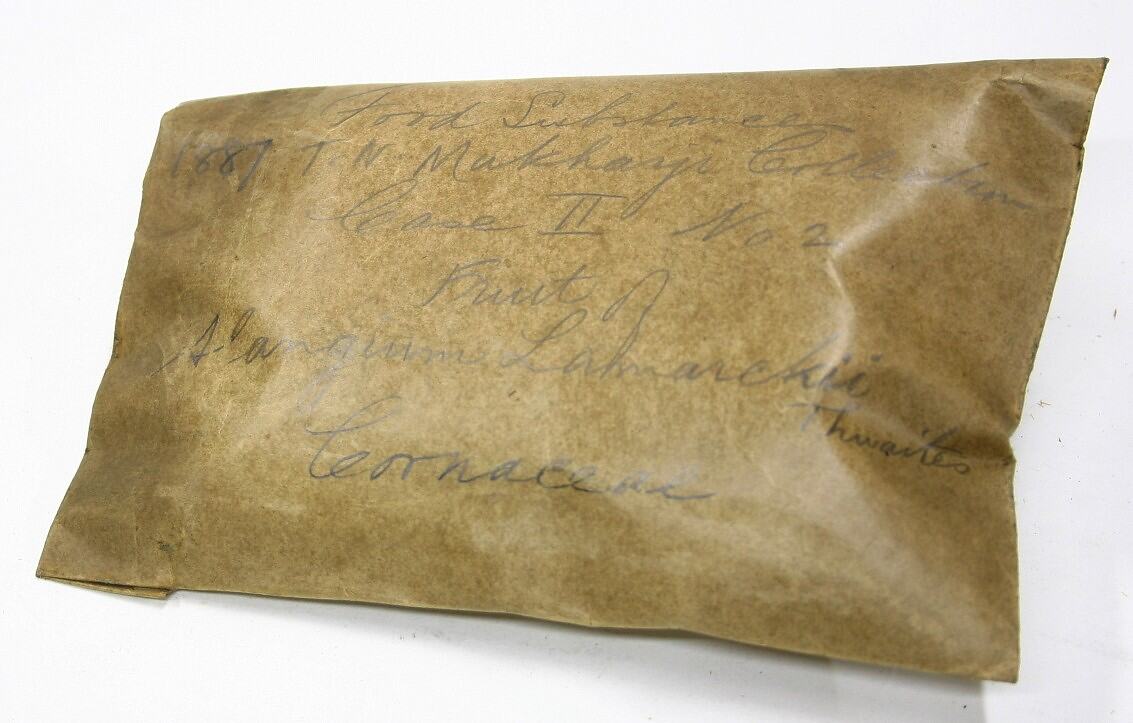 Food Substances
1887 T. N. Mukharji Collection
Case II No 2
Fruit of
Alangium Lamarckii
Thwaites
Cornaceae